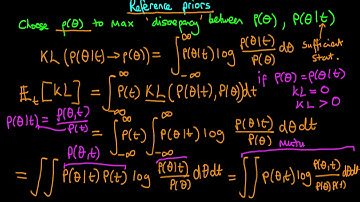 Reference priors
Choose p(θ) to max 'discrepancy' between p(θ), p(θ|t)
sufficient
stat.
KL(p(θ|t)→p(θ)) = ∫_{-∞}^{∞} p(θ|t) log p(θ|t)/p(θ) dθ
if p(θ)=p(θ|t)
KL=0
KL>0
𝔼_t[KL] = ∫_{-∞}^{∞} p(t) KL(p(θ|t), p(θ))dt
p(θ|t) = p(θ,t)/p(t)
= ∫_{-∞}^{∞} p(t) ∫_{-∞}^{∞} p(θ|t) log p(θ|t)/p(θ) dθ dt
p(θ,t)
mutu
= ∫∫ p(θ|t) p(t) log p(θ|t)/p(θ) dθ dt = ∫∫ p(θ,t) log p(θ,t)/p(θ)p(t) dθdt